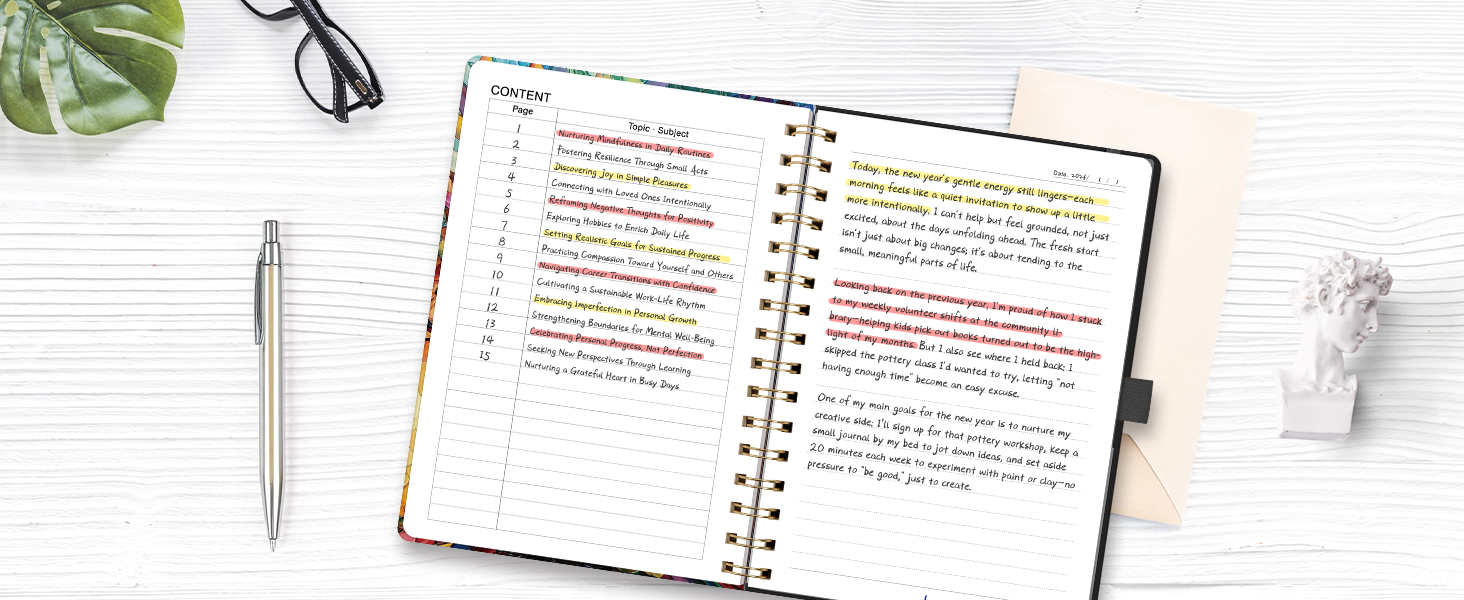 CONTENT
Page Topic · Subject
1 Nurturing Mindfulness in Daily Routines
2 Fostering Resilience Through Small Acts
3 Discovering Joy in Simple Pleasures
4 Connecting with Loved Ones Intentionally
5 Reframing Negative Thoughts for Positivity
6 Exploring Hobbies to Enrich Daily Life
7 Setting Realistic Goals for Sustained Progress
8 Practicing Compassion Toward Yourself and Others
9 Navigating Career Transitions with Confidence
10 Cultivating a Sustainable Work-Life Rhythm
11 Embracing Imperfection in Personal Growth
12 Strengthening Boundaries for Mental Well-Being
13 Celebrating Personal Progress, Not Perfection
14 Seeking New Perspectives Through Learning
15 Nurturing a Grateful Heart in Busy Days
Date. / 1 / 1
Today, the new year's gentle energy still lingers—each
morning feels like a quiet invitation to show up a little
more intentionally. I can't help but feel grounded, not just
excited, about the days unfolding ahead. The fresh start
isn't just about big changes; it's about tending to the
small, meaningful parts of life.
Looking back on the previous year, I'm proud of how I stuck
to my weekly volunteer shifts at the community li-
brary—helping kids pick out books turned out to be the high-
light of my months. But I also see where I held back: I
skipped the pottery class I'd wanted to try, letting "not
having enough time" become an easy excuse.
One of my main goals for the new year is to nurture my
creative side: I'll sign up for that pottery workshop, keep a
small journal by my bed to jot down ideas, and set aside
20 minutes each week to experiment with paint or clay—no
pressure to "be good," just to create.